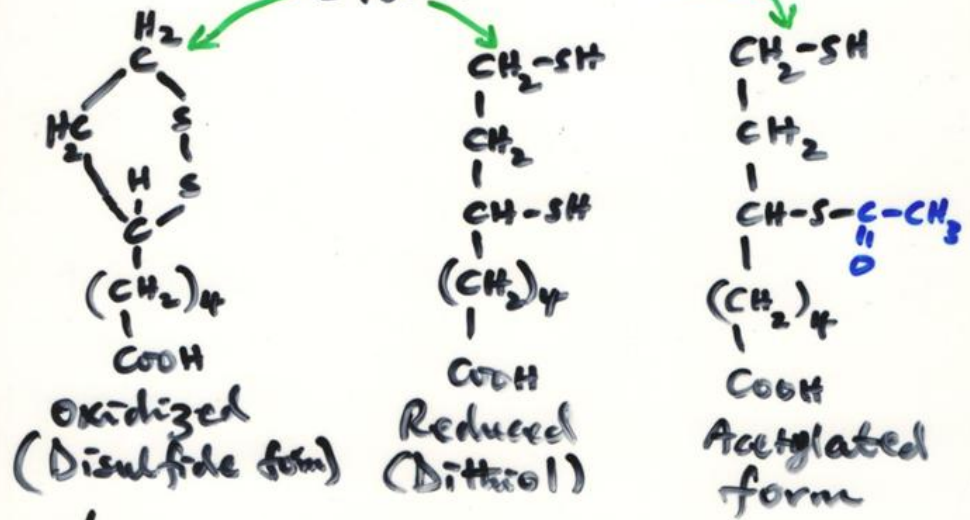 H2
C
H2C
S
S
H
C
(CH2)4
COOH
Oxidized
(Disulfide form)
CH2-SH
CH2
CH-SH
(CH2)4
COOH
Reduced
(Dithiol)
CH2-SH
CH2
CH-S-C-CH3
O
(CH2)4
COOH
Acetylated
form